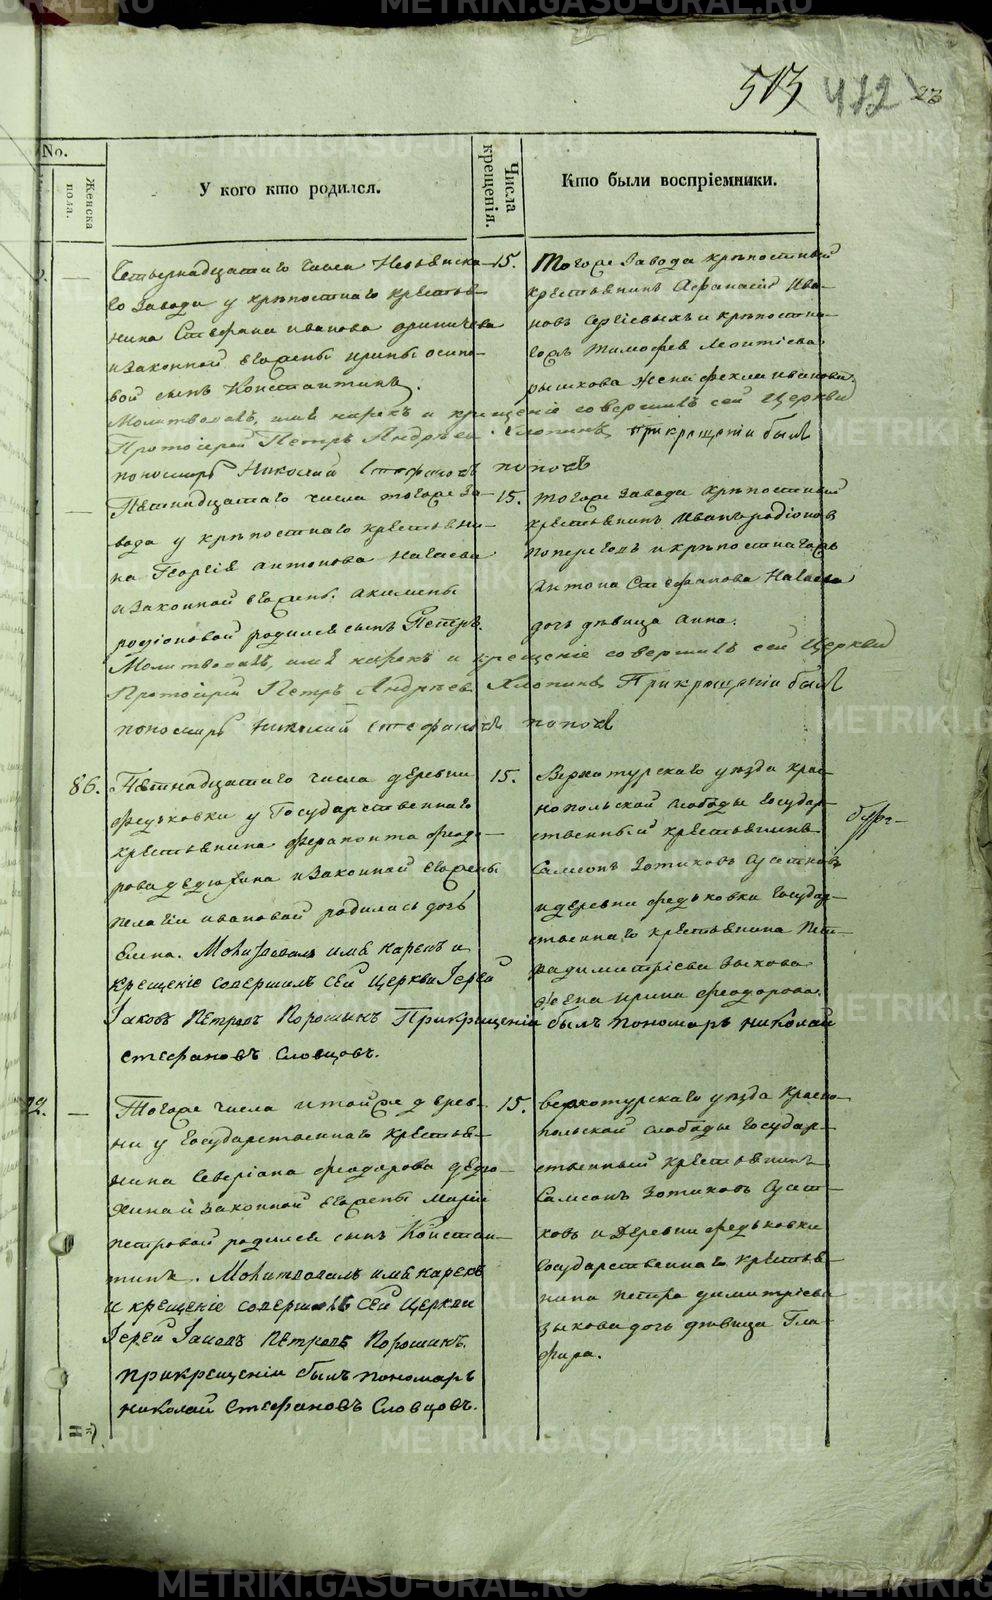 METRIKI.GASO-URAL.RU
513 412 23
No.
Женска пола.
У кого кто родился.
Числа крещенія.
Кто были воспріемники.
Четвернадцатаго числа Невьянска-
го завода у крѣпостнаго крестья-
нина Стефана иванова
и законной его жены ирины осипо-
вой сынъ Константинъ.
15.
Тогоже завода крѣпостный
крестьянинъ Афанасій Ива-
новъ Сергіевыхъ и крѣпостна-
Тимофея Леонтіева
рышкова жена фекла иванова
Молитвовалъ, имя нарекъ и крещеніе совершилъ сей Церкви
Протоіерей Петръ Андреевъ Хлопинъ, при крещеніи былъ
пономарь Николай Стефановъ поповъ
—
Пятнадцатаго числа тогоже за-
вода у крѣпостнаго крестьяни-
на Георгія антонова Нагаева
и законной его жены акилины
родіоновой родился сынъ Петръ.
15.
тогоже завода крѣпостный
крестьянинъ Иванъ родіоновъ
и крѣпостнаго
Антона Стефанова Нагаева
дочь дѣвица анна.
Молитвовалъ, имя нарекъ и крещеніе совершилъ сей Церкви
Протоіерей Петръ Андреевъ Хлопинъ При крещеніи былъ
пономарь Николай Стефановъ поповъ
86.
Пятнадцатаго числа деревни
Федьковки у Государственнаго
крестьянина ферапонта феодо-
рова дедюхина и законной его жены
пелагіи ивановой родилась дочь
Елена. Молитвовалъ имя нарекъ и
крещеніе совершилъ сей церкви Іерей
Іаковъ Петровъ Порошинъ При крещеніи былъ пономарь николай
стефановъ Словцовъ.
15.
Верхотурскаго уѣзда крас-
нопольской слободы государ-
ственный крестьянинъ
Самсонъ Зотиковъ
и деревни федьковки государ-
ственнаго крестьянина Пет-
ра димитріева зыкова
жена ирина феодорова.
22.
—
Тогоже числа и тойже дерев-
ни у государственнаго крестья-
нина Северіана феодорова дедю-
хина и законной его жены Маріи
петровой родился сынъ Констан-
тинъ. Молитвовалъ имя нарекъ
и крещеніе совершилъ сей церкви
Іерей Іаковъ Петровъ Порошинъ.
при крещеніи былъ пономарь
николай стефановъ Словцовъ.
15.
верхотурскаго уѣзда красно-
польской слободы государ-
ственный крестьянинъ
Самсонъ Зотиковъ
и деревни федьковки
государственнаго крестья-
нина петра димитріева
зыкова дочь дѣвица Гла-
фира.
METRIKI.GASO-URAL.RU